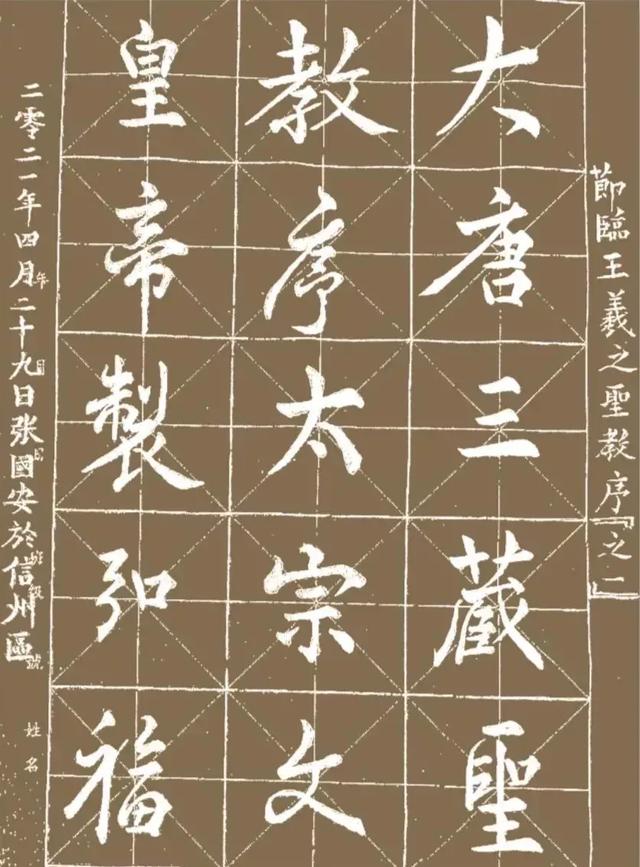 節臨王羲之聖教序『之一』
大唐三藏聖
教序太宗文
皇帝製弘福
二零二一年四月二十九日张國安於信州區
年
姓名